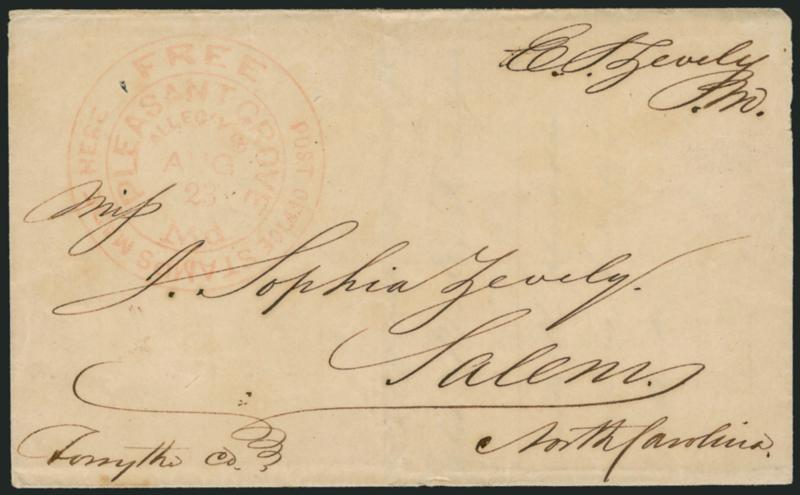 E. S. Zevely
P.M.
FREE
POST OFFICE STAMPS MADE HERE
PLEASANT GROVE
ALLEGY Co
AUG
23
Md
Miss
J. Sophia Zevely.
Salem.
Forsythe Co.
North Carolina.